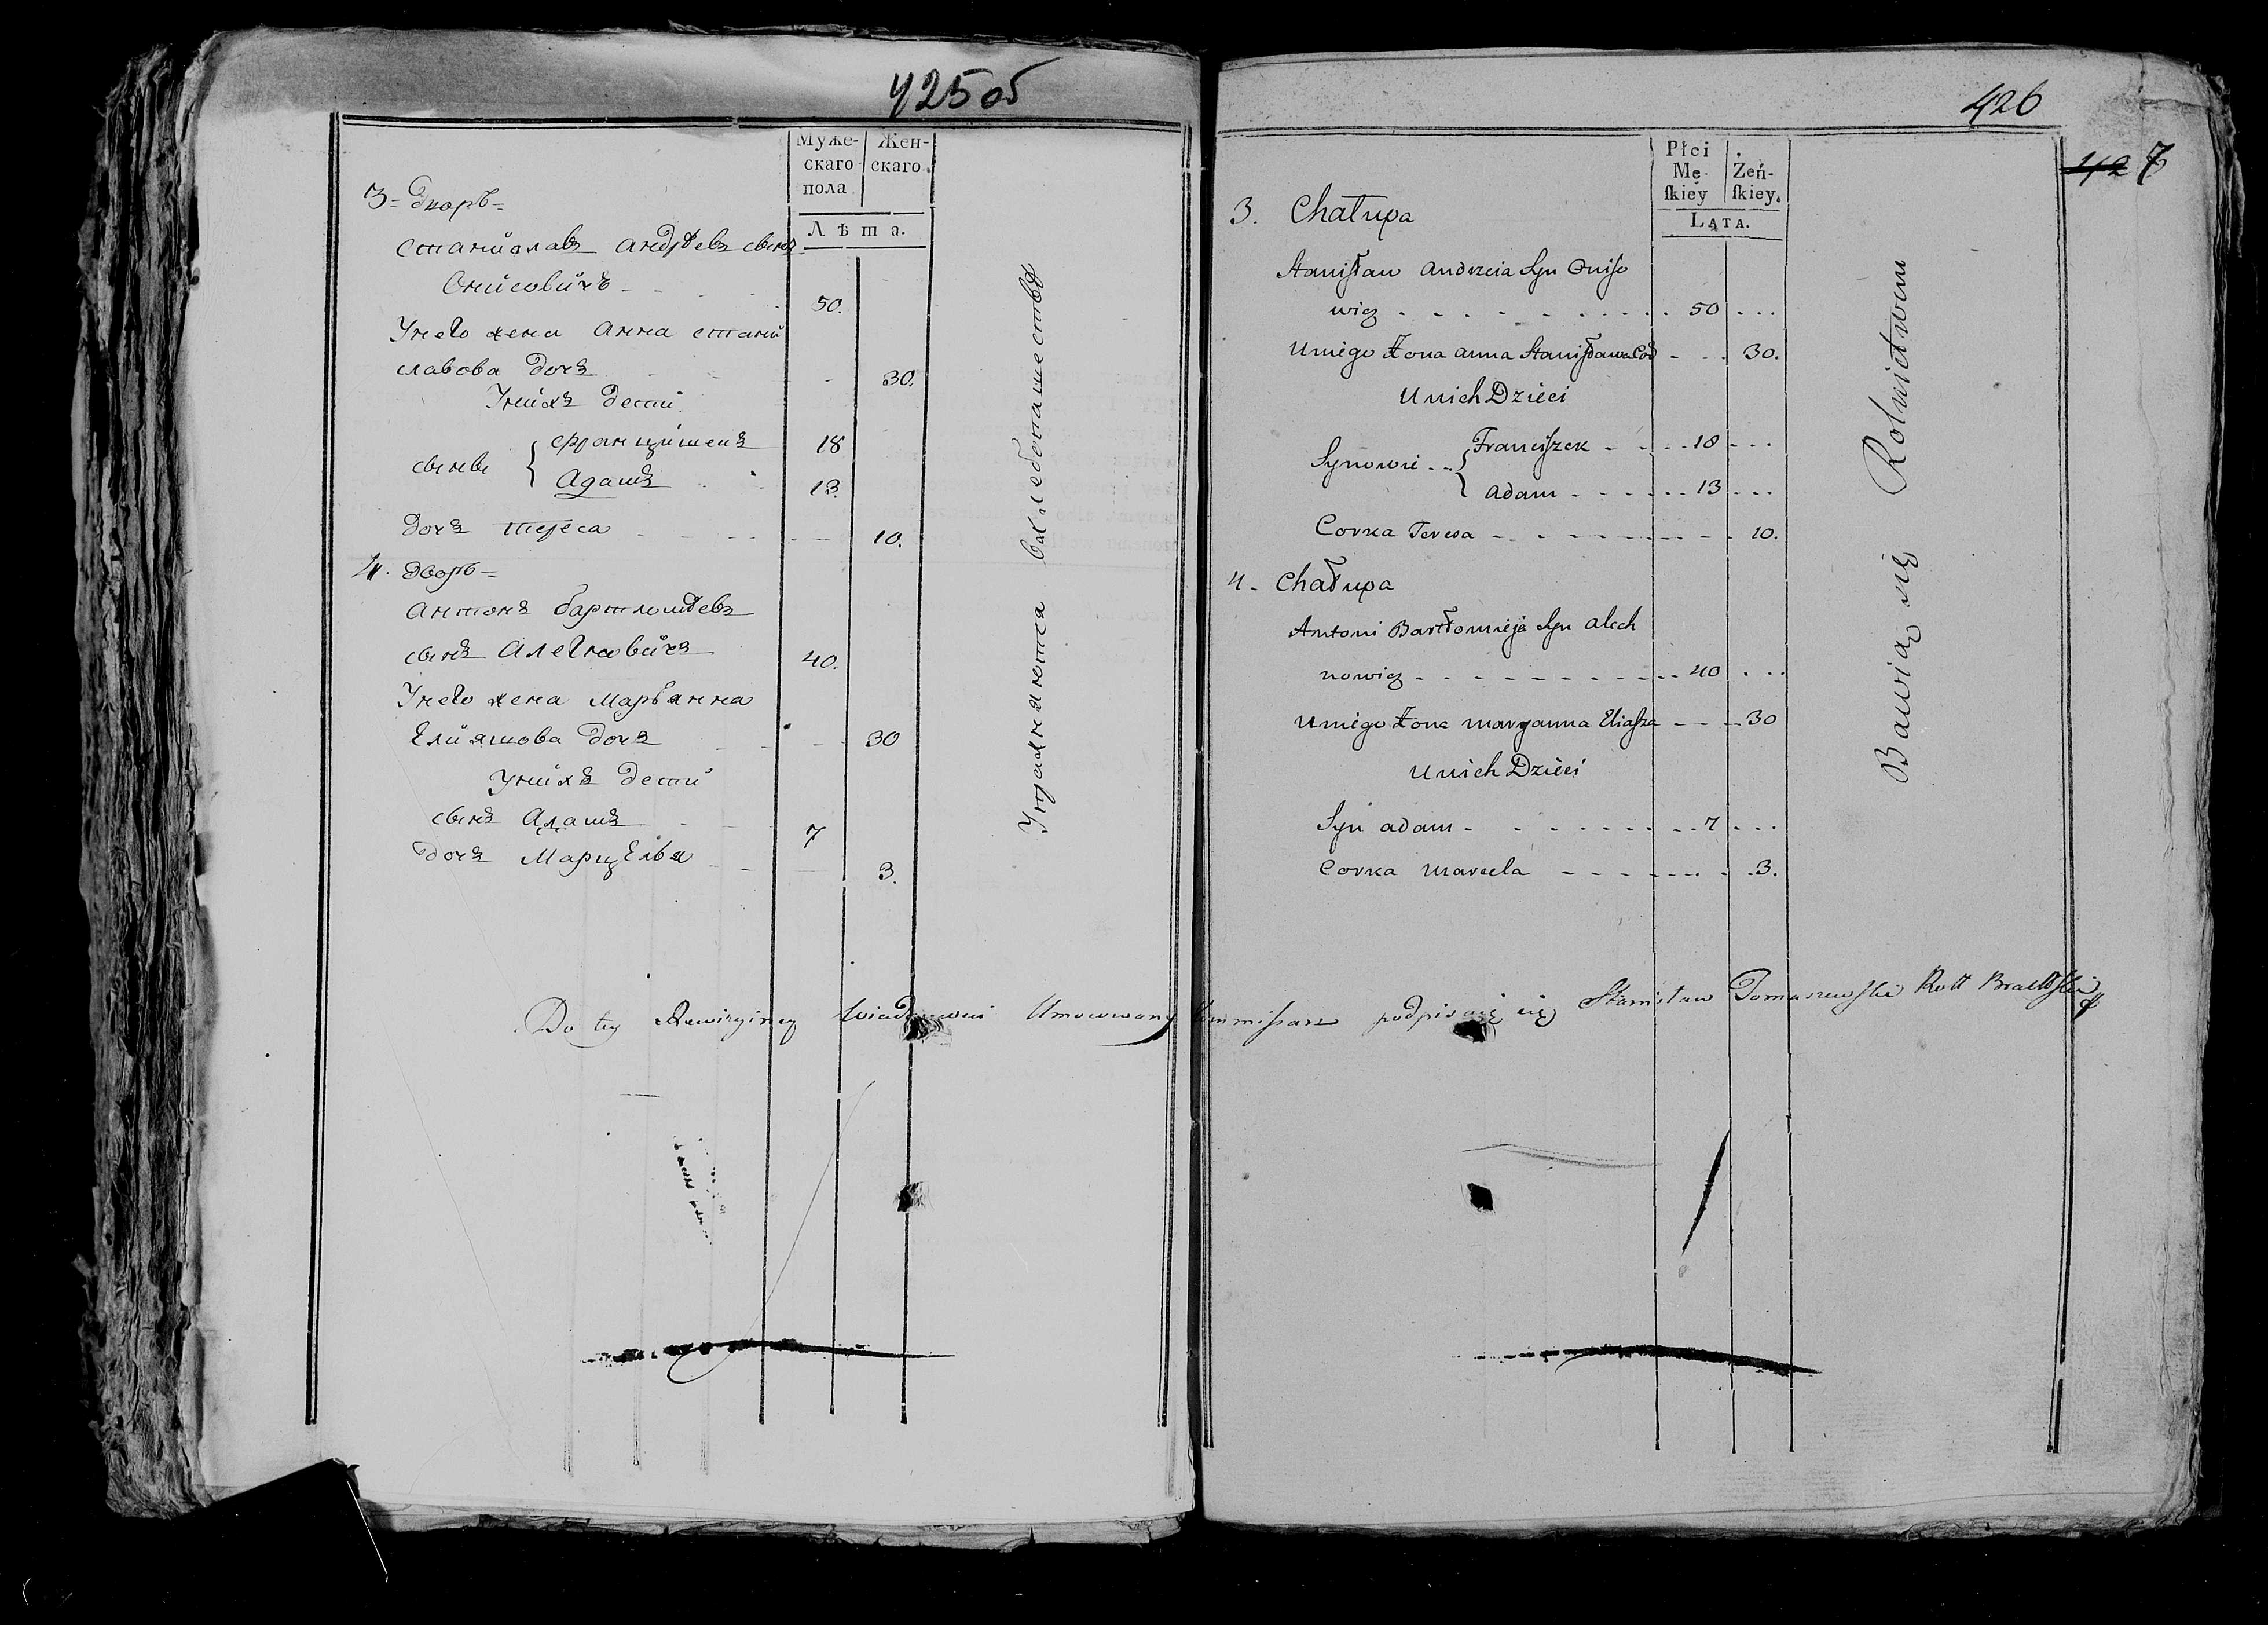 425 об
Муже-
скаго
пола
Жен-
скаго.
Лѣта.
3 = Дворъ =
Станиславъ Андрѣевъ сынъ
Онисовичъ 50.
У него жена Анна стани
славова дочь 30.
У нихъ дети
сынвы { Францишекъ 18
Адамъ 13.
дочь тереса 10.
4. дворъ =
Антонъ бартломѣевъ
сынъ Алехновичъ 40.
У него жена Марьянна
Елияшова дочь 30
У нихъ дети
сынъ Адамъ 7
дочь Марцелья 3.
Упражняются въ хлебопашестве
426
427
Płci
Mę-
ſkiey
Żeń-
ſkiey.
LATA.
3. Chałupa
Stanisław Andrzeia Syn Oniso
wicz 50
U niego Żona Anna Stanisława Cor 30.
U nich Dzieci
Synowie { Franciszek 18
Adam 13
Corka Teresa 10.
4. Chałupa
Antoni Bartłomieja Syn Alech
nowicz 40
U niego Żona Maryanna Eliasza 30
U nich Dzieci
Syn Adam 7
Corka Marcela 3.
Bawią się Rolnictwem
Do tey Rewizyiney Umocowany Kommissarz podpisuię się Stanisław Tomaszewski Rott